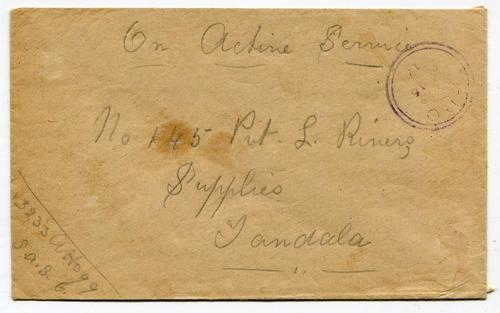 On Active Service
No 145 Pvt. L. Rivers
Supplies
Tandala
3233 A Hogg
S.A.S.C.